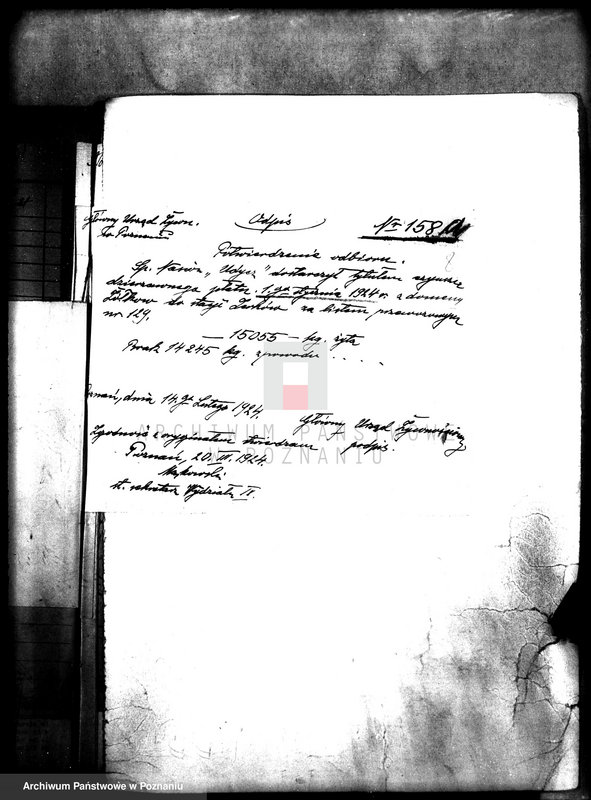 Główny Urząd Żywn. Odpis Nr 158
w Poznaniu
Potwierdzenie odbioru.
Sp. " dostarczył tytułem czynszu
dzierżawnego płatn. 1.go stycznia 1924 r. z domeny
ze stacji za listem przewozowym
nr. 129.
— 15055 — kg. żyta
Brak 14245 kg. z powodu . . . .
Poznań, dnia 14.go Lutego 1924.
Główny Urząd Żywnościowy
Zgodność z oryginałem stwierdzam podpis.
Poznań, 20. III. 1924.
st. sekretarz Wydziału II.
ARCHIWUM PAŃSTWOWE
W POZNANIU
Archiwum Państwowe w Poznaniu